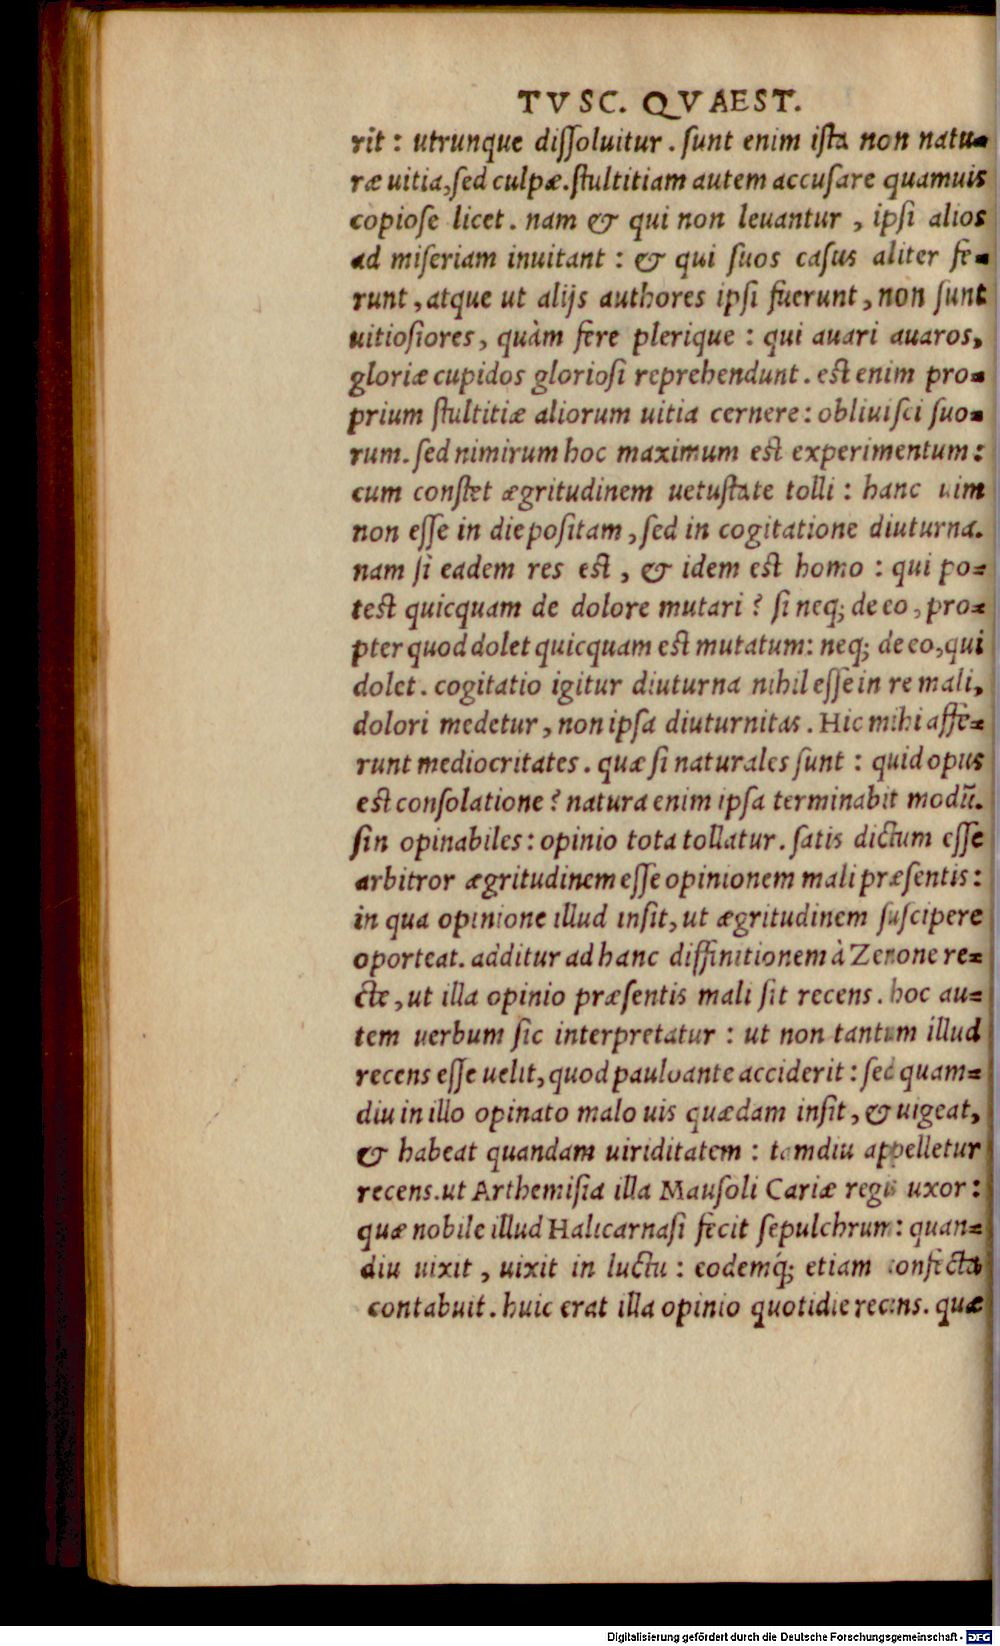 TVSC. QVAEST.
rit : utrunque dissoluitur . sunt enim ista non natu-
ræ uitia, sed culpæ. stultitiam autem accusare quamuis
copiose licet . nam & qui non leuantur , ipsi alios
ad miseriam inuitant : & qui suos casus aliter fe-
runt , atque ut alijs authores ipsi fuerunt , non sunt
uitiosiores, quàm fere plerique : qui auari auaros,
gloriæ cupidos gloriosi reprehendunt . est enim pro-
prium stultitiæ aliorum uitia cernere : obliuisci suo-
rum. sed nimirum hoc maximum est experimentum :
cum constet ægritudinem uetustate tolli : hanc uim
non esse in die positam , sed in cogitatione diuturna.
nam si eadem res est , & idem est homo : qui po-
test quicquam de dolore mutari ? si neq; de eo , pro-
pter quod dolet quicquam est mutatum : neq; de eo, qui
dolet . cogitatio igitur diuturna nihil esse in re mali,
dolori medetur , non ipsa diuturnitas . Hic mihi affe-
runt mediocritates . quæ si naturales sunt : quid opus
est consolatione ? natura enim ipsa terminabit modū.
sin opinabiles : opinio tota tollatur . satis dictum esse
arbitror ægritudinem esse opinionem mali præsentis :
in qua opinione illud insit, ut ægritudinem suscipere
oporteat. additur ad hanc diffinitionem à Zenone re-
cte , ut illa opinio præsentis mali sit recens . hoc au-
tem uerbum sic interpretatur : ut non tantum illud
recens esse uelit, quod paulo ante acciderit : sed quam-
diu in illo opinato malo uis quædam insit , & uigeat,
& habeat quandam uiriditatem : tamdiu appelletur
recens. ut Arthemisia illa Mausoli Cariæ regis uxor :
quæ nobile illud Halicarnasi fecit sepulchrum : quan-
diu uixit , uixit in luctu : eodemq́; etiam confecta
contabuit . huic erat illa opinio quotidie recens. quæ
Digitalisierung gefördert durch die Deutsche Forschungsgemeinschaft - DFG